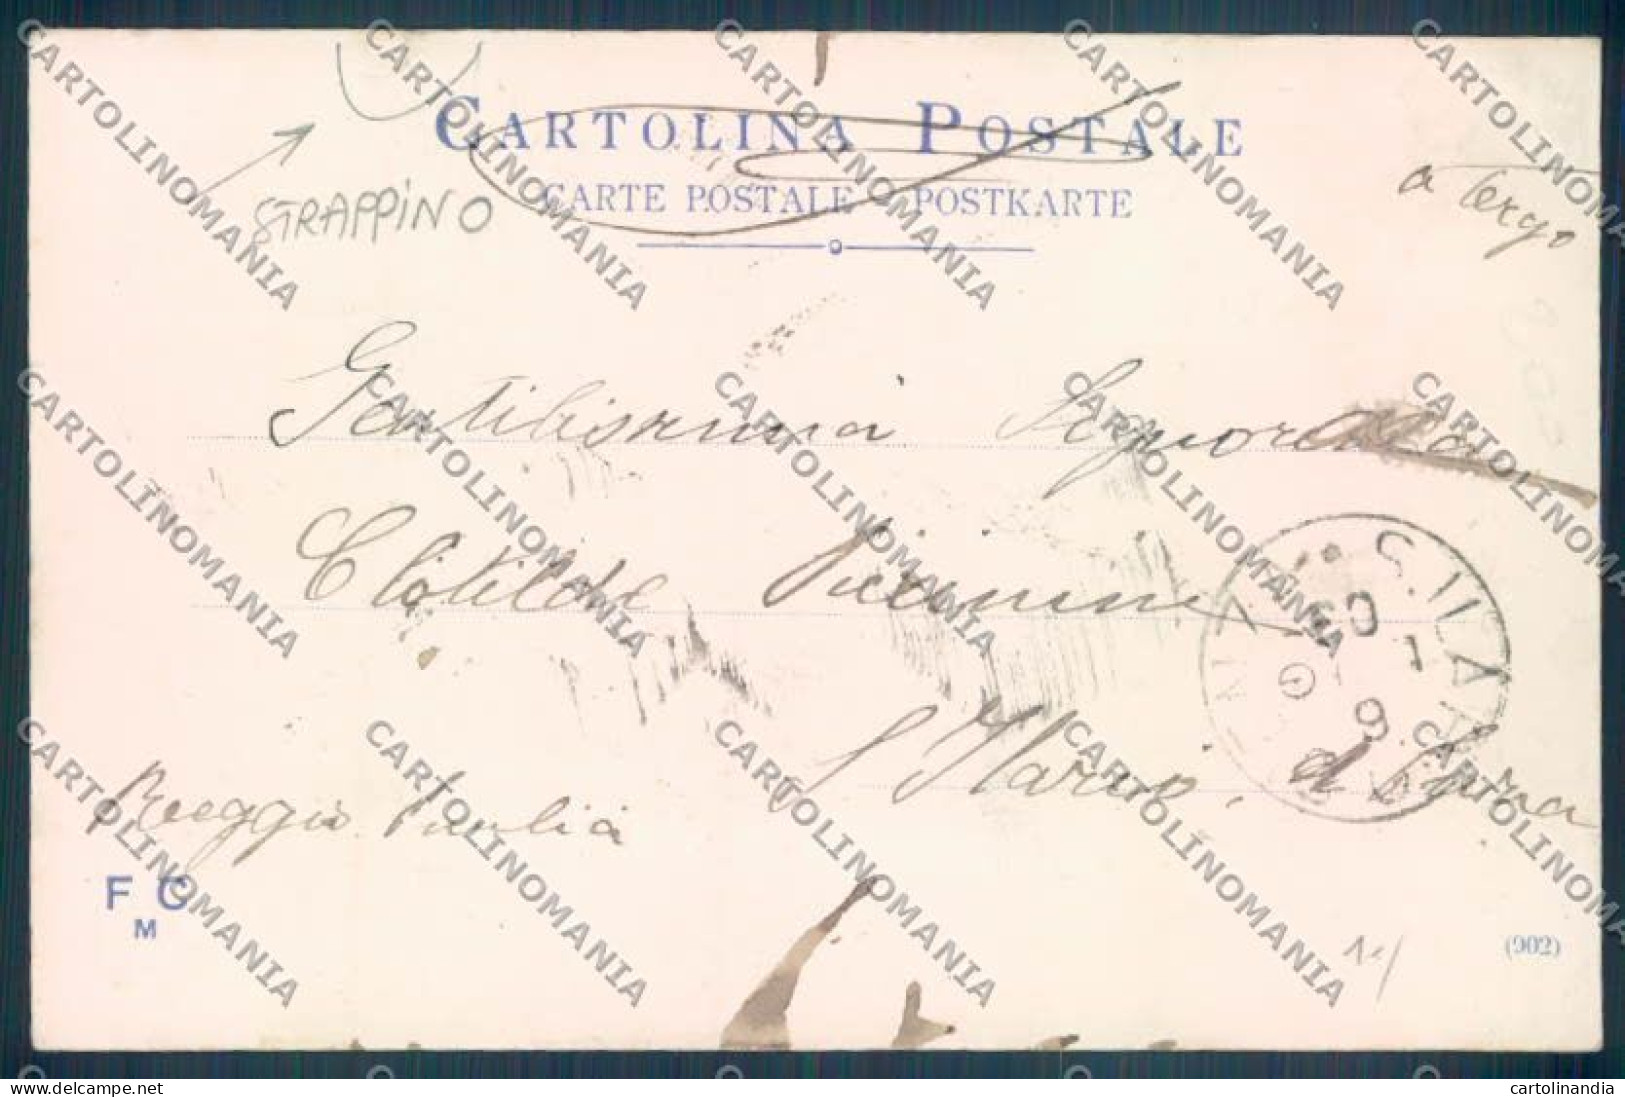 CARTOLINA POSTALE
CARTE POSTALE POSTKARTE
STRAPPINO
a Tergo
Gentilissima Signorina
Clotilde
S. Maria d'
Reggio Emilia
F G
M
(902)
CARTOLINOMANIA
www.delcampe.net
cartolinandia